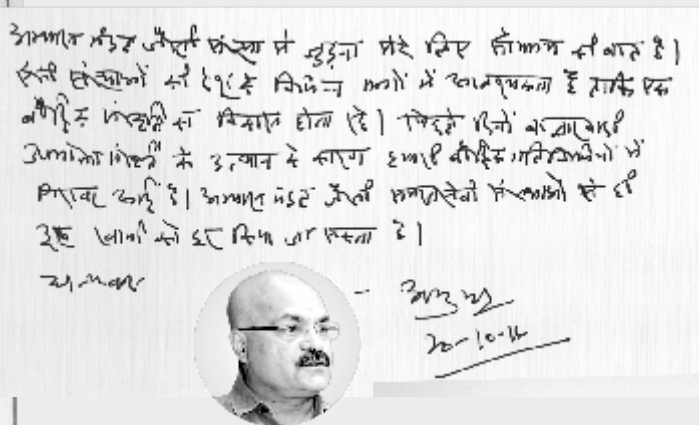 अभ्यास मंडल जैसी संस्था से जुड़ना मेरे लिए सौभाग्य की बात है।
ऐसी संस्थाओं की देश के विभिन्न भागों में आवश्यकता है ताकि एक
बौद्धिक संस्कृति का विकास होता रहे। पिछले दिनों बाजारवादी
उपभोक्ता संस्कृति के उत्थान के कारण हमारी बौद्धिक गतिविधियों में
गिरावट आई है। अभ्यास मंडल जैसी समाजसेवी संस्थाओं से ही
इस खामी को दूर किया जा सकता है।
धन्यवाद
20-10-